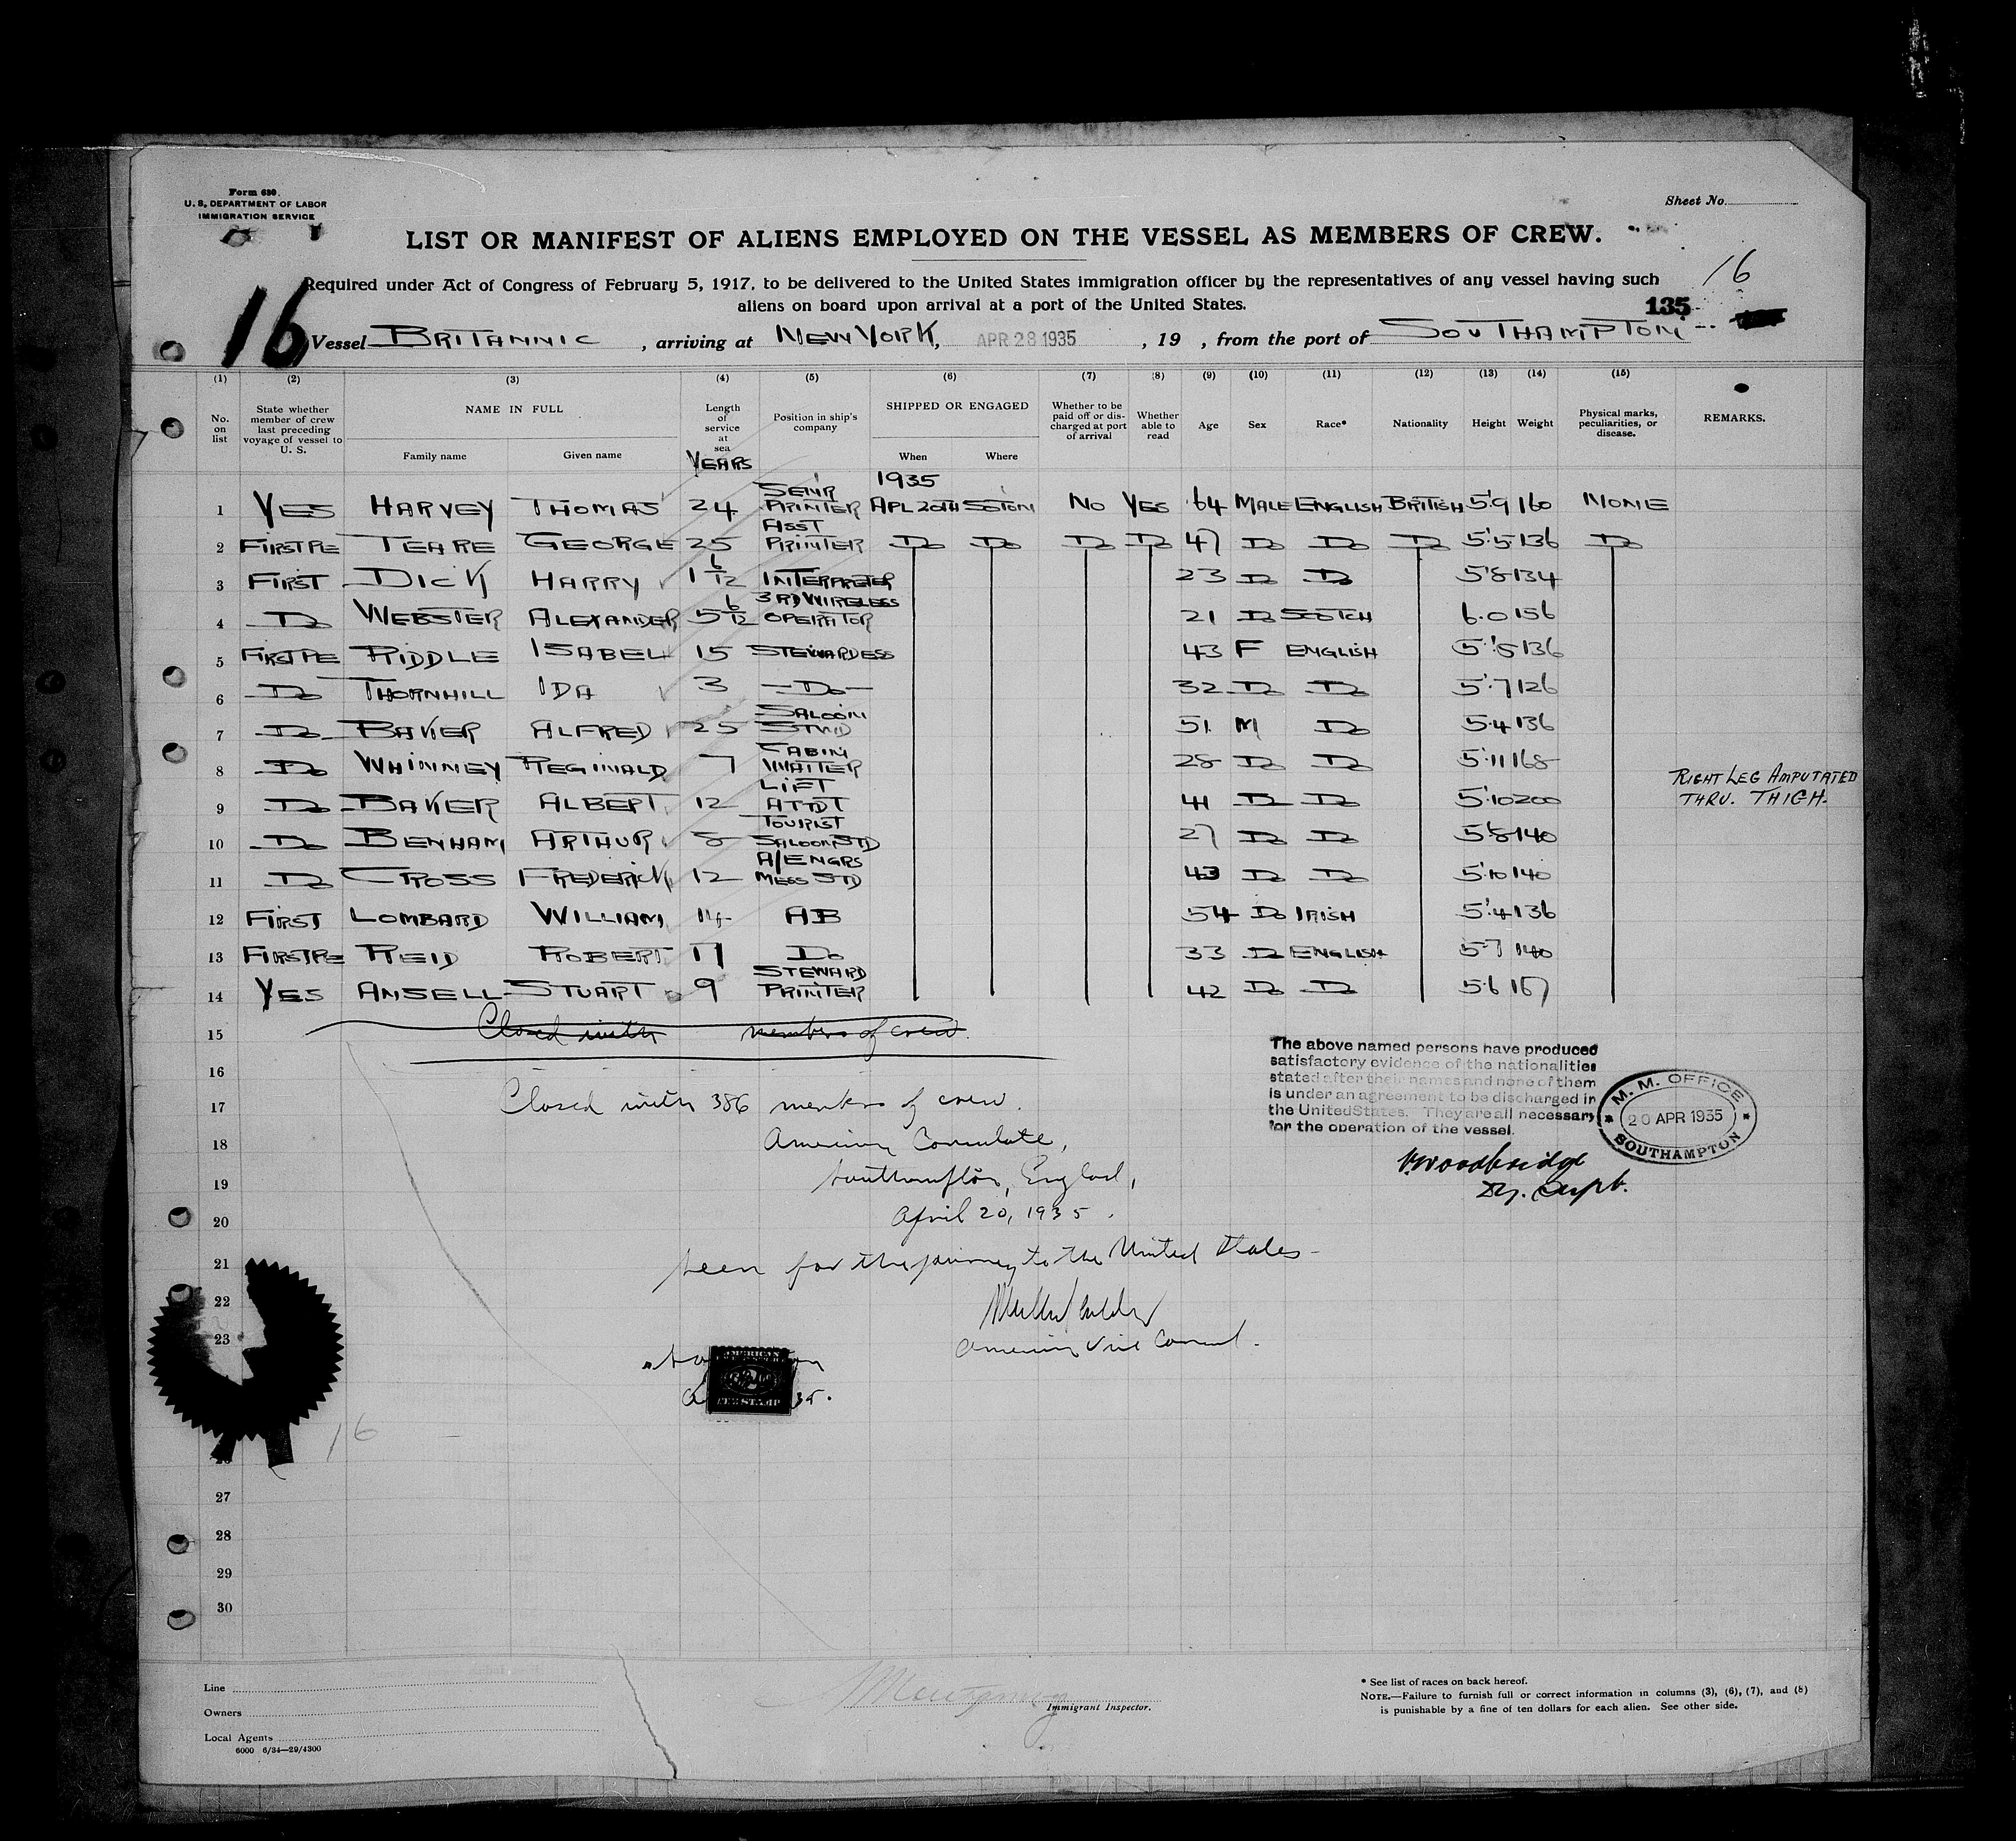 Form 630.
U. S. DEPARTMENT OF LABOR
IMMIGRATION SERVICE
Sheet No.
LIST OR MANIFEST OF ALIENS EMPLOYED ON THE VESSEL AS MEMBERS OF CREW.
16
Required under Act of Congress of February 5, 1917, to be delivered to the United States immigration officer by the representatives of any vessel having such
aliens on board upon arrival at a port of the United States.
135
16 Vessel BRITANNIC , arriving at NEW YORK, APR 28 1935 , 19 , from the port of SOUTHAMPTON
(1) (2) (3) (4) (5) (6) (7) (8) (9) (10) (11) (12) (13) (14) (15)
No. on list State whether member of crew last preceding voyage of vessel to U. S. NAME IN FULL Family name Given name Length of service at sea YEARS Position in ship's company SHIPPED OR ENGAGED When Where Whether to be paid off or discharged at port of arrival Whether able to read Age Sex Race* Nationality Height Weight Physical marks, peculiarities, or disease. REMARKS.
1935
1 YES HARVEY THOMAS 24 SENR PRINTER APL 20TH SOTON NO YES 64 MALE ENGLISH BRITISH 5'9 160 NONE
2 FIRST RE TEARE GEORGE 25 ASST PRINTER DO DO DO DO 47 DO DO DO 5'5 136 DO
3 FIRST DICK HARRY 1 6/12 INTERPRETER 23 DO DO 5'8 134
4 DO WEBSTER ALEXANDER 5 6/12 3RD WIRELESS OPERATOR 21 DO SCOTCH 6.0 156
5 FIRST RE RIDDLE ISABEL 15 STEWARDESS 43 F ENGLISH 5'8 136
6 DO THORNHILL IDA 3 -DO- 32 DO DO 5'7 126
7 DO BAKER ALFRED 25 SALOON STWD 51 M DO 5.4 136
8 DO WHINNEY REGINALD 7 CABIN WAITER 28 DO DO 5'11 168
9 DO BAKER ALBERT 12 LIFT ATTDT 41 DO DO 5'10 200 RIGHT LEG AMPUTATED THRU. THIGH.
10 DO BENHAM ARTHUR 8 TOURIST SALOON STD 27 DO DO 5'8 140
11 DO CROSS FREDERICK 12 A/ENGRS MESS STD 43 DO DO 5'10 140
12 FIRST LOMBARD WILLIAM 14 AB 54 DO IRISH 5'4 136
13 FIRST RE REID ROBERT 17 DO 33 DO ENGLISH 5'7 140
14 YES ANSELL STUART 9 STEWARD PRINTER 42 DO DO 5'6 167
15 Closed with members of crew.
16
17 Closed with 386 members of crew.
18 American Consulate,
19 Southampton, England,
20 April 20, 1935.
21 Seen for the journey to the United States
22
23 American Vice Consul.
The above named persons have produced
satisfactory evidence of the nationalities
stated after their names and none of them
is under an agreement to be discharged in
the United States. They are all necessary
for the operation of the vessel.
M. M. OFFICE
20 APR 1935
SOUTHAMPTON
Woodbridge
Dy. Supt.
35.
16
27
28
29
30
Line
Owners
Local Agents
6000 6/34—29/4300
Montgomery
Immigrant Inspector.
* See list of races on back hereof.
NOTE.—Failure to furnish full or correct information in columns (3), (6), (7), and (8)
is punishable by a fine of ten dollars for each alien. See other side.